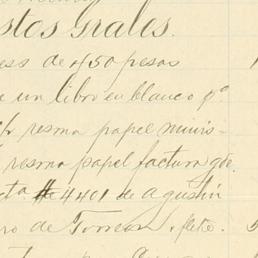 stos Grales.
ess de 450 pesos
e un libro en blanco pª
resma papel minis-
resma papel factura gde.
cta # 4401 de Agustin
ro de Torreon, flete.